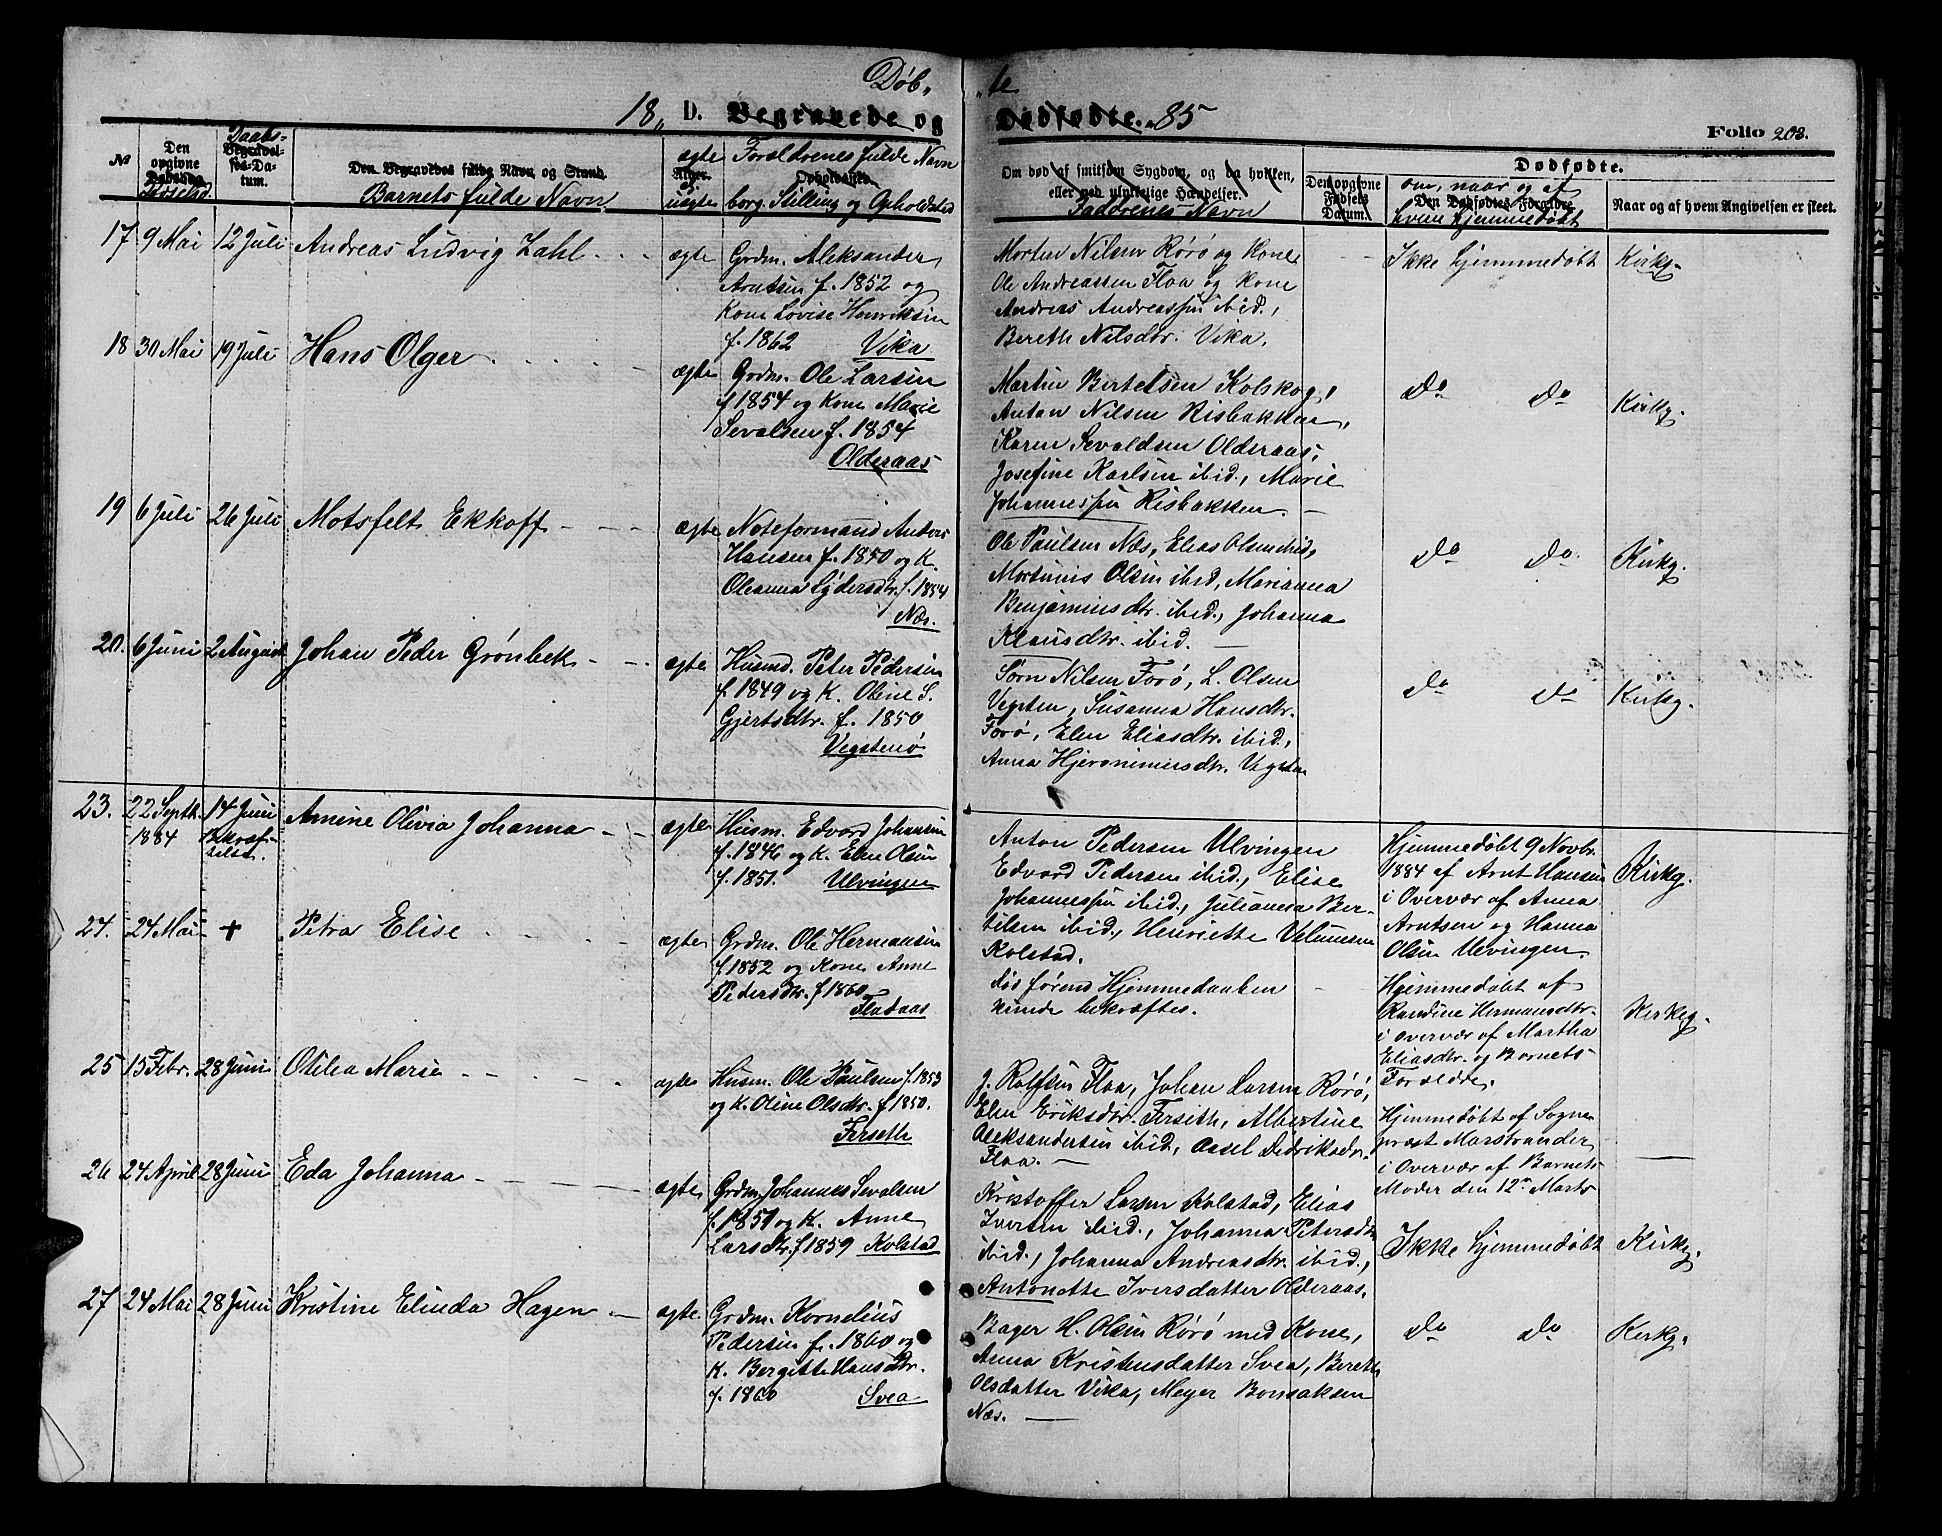 Døb„ „te
18„ D. Begravede og Dødfødte. „85
Folio 203.
No
Den opgivne Dødsdag Fødselsd.
Daabs- Begravelses-Datum.
Den Begravedes fulde Navn og Stand.
Barnets fulde Navn
ægte Alder. uægte
Forældrenes fulde Navn
Opholdssted.
borg. Stilling og Opholdsted
Om død af smitsom Sygdom, og da hvilken,
eller ved ulykkelige Hændelser.
Faddrenes Navn
Den opgivne Fødsels Datum.
Dødfødte.
om, naar og af
Den Dødfødtes Forældre.
hvem hjemmedøbt
Naar og af hvem Angivelsen er skeet.
17 9 Mai 12 Juli Andreas Ludvig Zahl
ægte Grdm. Aleksander
Arntsen f. 1852 og
Kone Lovise Henriksen
f. 1862 Vika
Morten Nilsen Rørø og Kone
Ole Andreassen Floa og Kone
Andreas Andreassen ibid.,
Bereth Nilsdtr. Vika.
Ikke hjemmedøbt Kirkg.
18 30 Mai 19 Juli Hans Olger
ægte Grdm. Ole Larsen
f 1854 og Kone Marie
Sevalsen f. 1854
Olderaas
Martin Bertelsen Kolskog,
Antan Nilsen Risbakken,
Karen Sevaldsen Olderaas,
Josefine Karlsen ibid., Marie
Johannessen Risbakken. —
Do Do Kirkg.
19 6 Juli 26 Juli Motsfelt Ekkoff
ægte Noteformand Anders
Hansen f. 1850 og K.
Oleanna Lydersdtr. f. 1854
Næs.
Ole Paulsen Næs, Elias Olsen ibid,
Mortinus Olsen ibid, Marianna
Benjaminsdtr. ibid., Johanna
Klausdtr. ibid. —
Do Do. Kirkg.
20. 6 Juni 2 August Johan Peder Grønbek
ægte Husmd. Peter Pedersen
f. 1849 og K. Oline S.
Gjertsdtr. f. 1850
Vegstenø
Sørn Nilsen Forø, L. Olsen
Vegsten, Susanna Hansdtr.
Forø, Elen Eliasdtr. ibid.,
Anna Hjeronimusdtr. Vegsten
Do Do Kirkg.
23. 22 Septb. 1884 14 Juni Bekræftelse. Amine Olivia Johanna
ægte Husm. Edvard Johansen
f. 1846 og K. Elen Olsen
f. 1851. Ulvingen
Anton Pedersen Ulvingen
Edvard Pedersen ibid., Elise
Johannessen ibid., Julianna Ber-
tilsen ibid., Henriette Velumsen
Kolstad.
Hjemmedøbt 9 Novbr.
1884 af Arnt Hansen
i Overvær af Anna
Arntsen og Hanna
Olsen Ulvingen.
Kirkg.
24. 24 Mai + Petra Elise
ægte Grdm. Ole Hermansen
f 1852 og Kone Anne
Pedersdtr. f 1860
Fladaas
død førend Hjemmedaaben
kunde bekræftes.
Hjemmedøbt af
Randine Hermansdtr.
i overvær af Martha
Eliasdtr. og Barnets
Forældre.
Kirkeg.
25 15 Febr. 28 Juni Otilea Marie
ægte Husm. Ole Paulsen f. 1853
og K. Oline Olsdtr. f 1850.
Forseth
J. Rolfsen Floa, Johan Larsen Rørø,
Elen Eriksdtr. Forseth, Albertine
Aleksandersen ibid., Aasel Dedriksdtr.
Floa. —
Hjemmedøbt af Sogne-
præst Marstrander
i Overvær af Barnets
Moder den 12te Marts
26 24 April 28 Juni Eda Johanna
ægte Grdm. Johannes Sevalsen
f. 1851 og K. Anne
Larsdtr. f 1859 Kolstad
Kristoffer Larsen Kolstad, Elias
Iversen ibid., Johanna Petersdtr.
ibid., Johanna Andreasdtr. ibid.,
Antonette Iversdatter Olderaas.
Ikke hjemmedøbt Kirkg.
27 24 Mai 28 Juni Kristine Elinda Hagen
ægte Grdm. Kornelius
Pedersen f. 1860 og
K. Bergitte Hansdtr.
f. 1860 Svea
Bager H. Olsen Rørø med Kone,
Anna Kristensdatter Svea, Bereth
Olsdatter Vika, Meyer Bonsaksen
Næs. —
Do Do Kirkg.